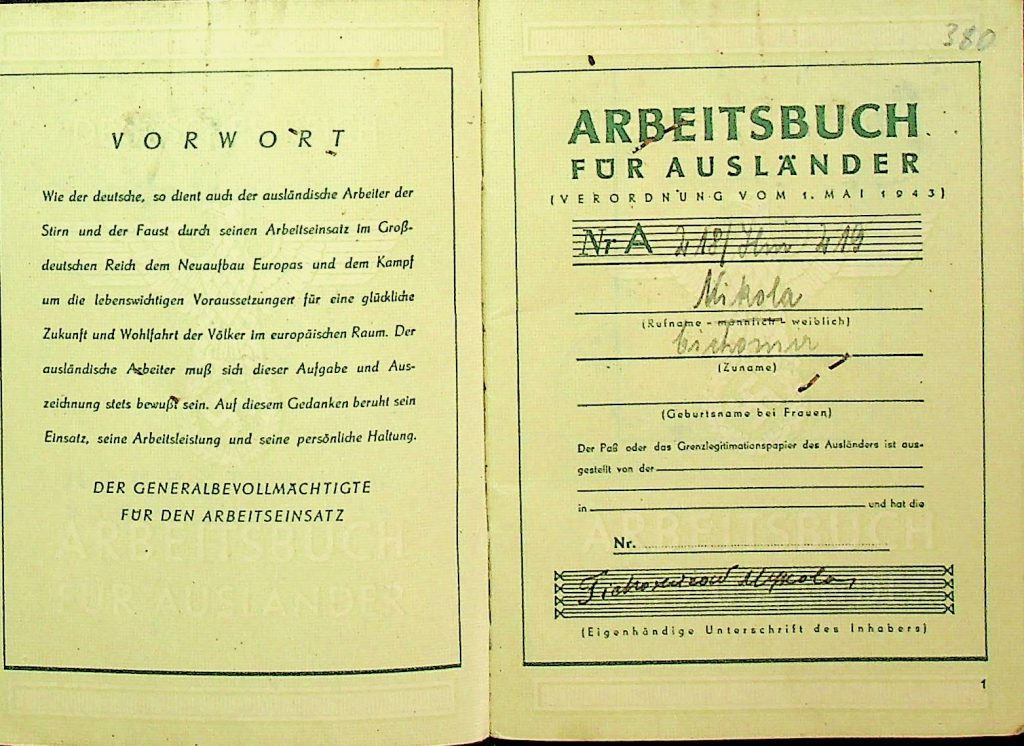 VORWORT
Wie der deutsche, so dient auch der ausländische Arbeiter der
Stirn und der Faust durch seinen Arbeitseinsatz im Groß-
deutschen Reich dem Neuaufbau Europas und dem Kampf
um die lebenswichtigen Voraussetzungen für eine glückliche
Zukunft und Wohlfahrt der Völker im europäischen Raum. Der
ausländische Arbeiter muß sich dieser Aufgabe und Aus-
zeichnung stets bewußt sein. Auf diesem Gedanken beruht sein
Einsatz, seine Arbeitsleistung und seine persönliche Haltung.
DER GENERALBEVOLLMÄCHTIGTE
FÜR DEN ARBEITSEINSATZ
ARBEITSBUCH
FÜR AUSLÄNDER
380
ARBEITSBUCH
FÜR AUSLÄNDER
(VERORDNUNG VOM 1. MAI 1943)
Nr A
Mikola
(Rufname - männlich - weiblich)
(Zuname)
(Geburtsname bei Frauen)
Der Paß oder das Grenzlegitimationspapier des Ausländers ist aus-
gestellt von der
in und hat die
ARBEITSBUCH
Nr.
(Eigenhändige Unterschrift des Inhabers)
1